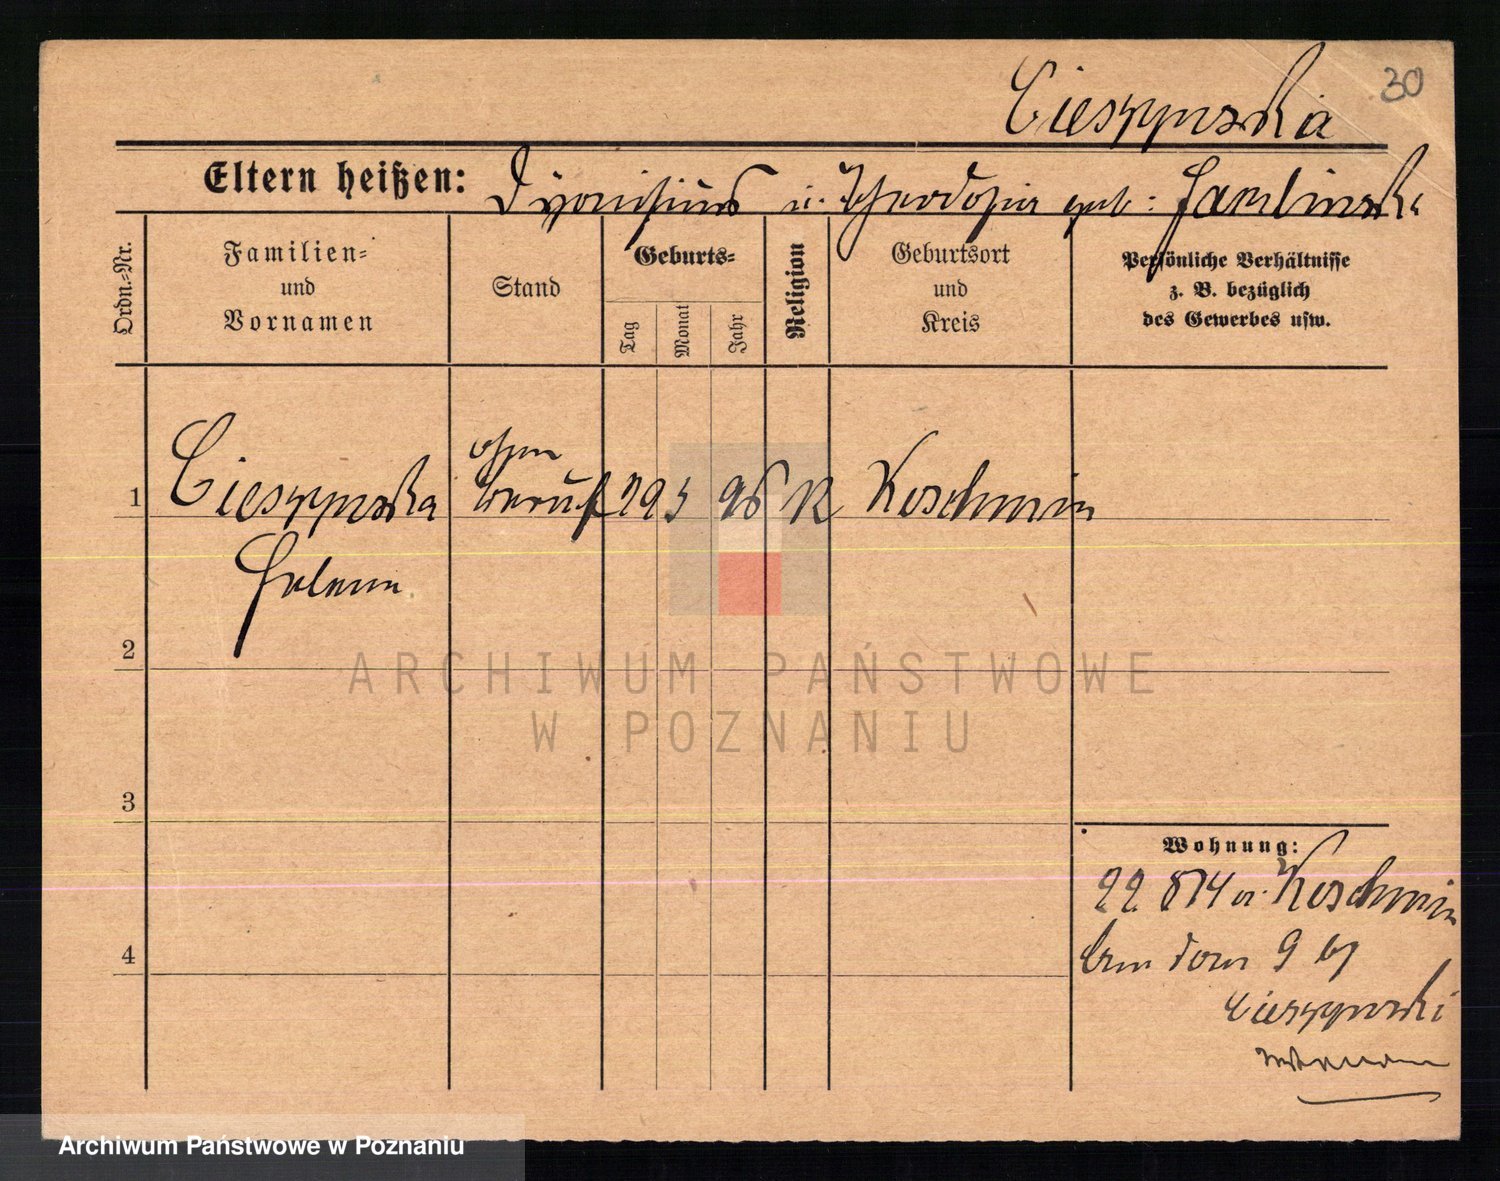 30
Cieszynska
Eltern heißen: Dyonisius u. Theodosia geb:
Ordn.-Nr.
Familien-
und
Vornamen
Stand
Geburts-
Tag
Monat
Jahr
Religion
Geburtsort
und
Kreis
Persönliche Verhältnisse
z. B. bezüglich
des Gewerbes usw.
ohne
1 Cieszynska Beruf 29 5 96 K Koschmin
Helene
2
3
4
Wohnung:
22 8 14 v. Koschmin
9
Cieszynski
ARCHIWUM PAŃSTWOWE
W POZNANIU
Archiwum Państwowe w Poznaniu